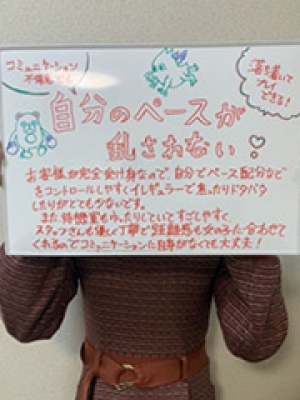 コミュニケーション
不得意でも
落ち着いて
プレイ
できる！
自分のペースが
乱されない♡
お客様が完全受け身なので、自分でペース配分など
をコントロールしやすくイレギュラーで焦ったりドタバタ
したりがとても少ないです。
また待機室もゆったりしていてすごしやすく
スタッフさんも優しく丁寧で距離感も女の子に合わせて
くれるのでコミュニケーションに自身がなくても大丈夫！